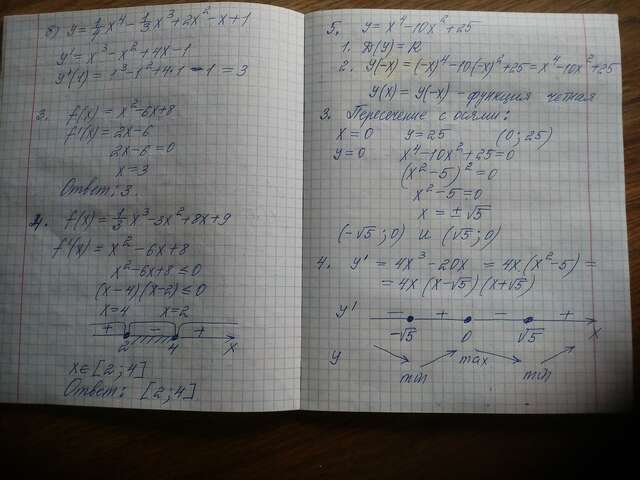 б) y = 1/4 x⁴ - 1/3 x³ + 2x² - x + 1
y' = x³ - x² + 4x - 1
y'(1) = 1³ - 1² + 4·1 - 1 = 3
3. f(x) = x² - 6x + 8
f'(x) = 2x - 6
2x - 6 = 0
x = 3
Ответ: 3.
4. f(x) = 1/3 x³ - 3x² + 8x + 9
f'(x) = x² - 6x + 8
x² - 6x + 8 ≤ 0
(x - 4)(x - 2) ≤ 0
x = 4 x = 2
+ - +
2 4 x
x ∈ [2; 4]
Ответ: [2; 4]
5. y = x⁴ - 10x² + 25
1. D(y) = R
2. y(-x) = (-x)⁴ - 10(-x)² + 25 = x⁴ - 10x² + 25
y(x) = y(-x) - функция четная
3. Пересечение с осями:
x = 0 y = 25 (0; 25)
y = 0 x⁴ - 10x² + 25 = 0
(x² - 5)² = 0
x² - 5 = 0
x = ± √5
(-√5; 0) и (√5; 0)
4. y' = 4x³ - 20x = 4x (x² - 5) =
= 4x (x - √5)(x + √5)
y' - + - +
-√5 0 √5 x
y
min max min